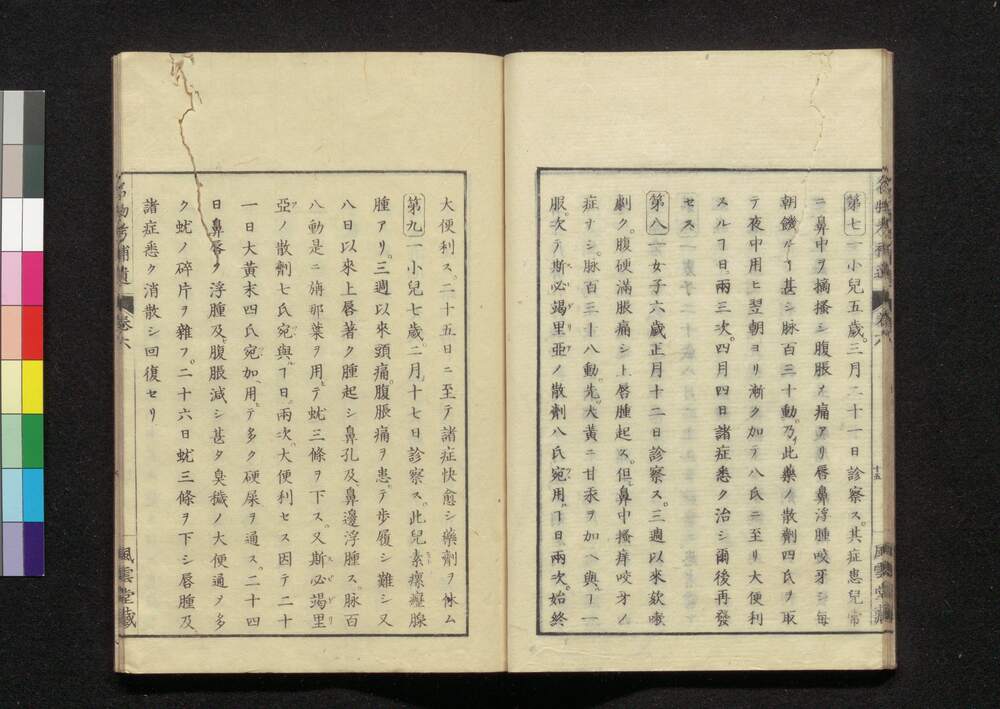 第七 一小兒五歳。三月二十一日診察ス。其症患兒常
ニ鼻中ヲ摘搔シ腹脹メ痛アリ唇鼻浮腫咬牙シ毎
朝饑ルヿ甚シ脉百三十動。乃此藥ノ散劑四氏ヲ取
テ夜中用ヒ翌朝ヨリ漸ク加テ八氏ニ至リ大便利
スルヿ日。兩三次。四月四日諸症悉ク治シ爾後再發
セス
第八 一女子六歳正月十二日診察ス。三週以來欬嗽
劇ク。腹硬滿脹痛シ上唇腫起ス。但鼻中搔痒咬牙ノ
症ナシ。脉百三十八動。先大黄ニ甘汞ヲ加ヘ與。フヿ一
服。次テ斯必竭里亞ノ散劑八氏宛用。ヿ日兩次。始終
十五
風雲堂藏
大便利ス。二十五日ニ至テ諸症快愈シ藥劑ヲ休ム
第九 一小兒七歳。二月十七日診察ス。此兒素瘰癧腺
腫アリ。三週以來頭痛。腹脹痛ヲ患テ歩履シ難シ又
八日以來上唇著ク腫起シ鼻孔及鼻邊浮腫ス。脉百
八動是ニ旃那葉ヲ用テ蚘三條ヲ下ス。又斯必竭里
亞ノ散劑七氏宛與。フヿ日。兩次。大便利セス因テ二十
一日大黄末四氏宛加用。テ多ク硬屎ヲ通ス。二十四
日鼻唇ノ浮腫及腹脹減シ甚タ臭穢ノ大便通メ多
ク蚘ノ碎片ヲ雜フ。二十六日蚘三條ヲ下シ唇腫及
諸症悉ク消散シ回復セリ
名物考補遺
卷六
風雲堂藏